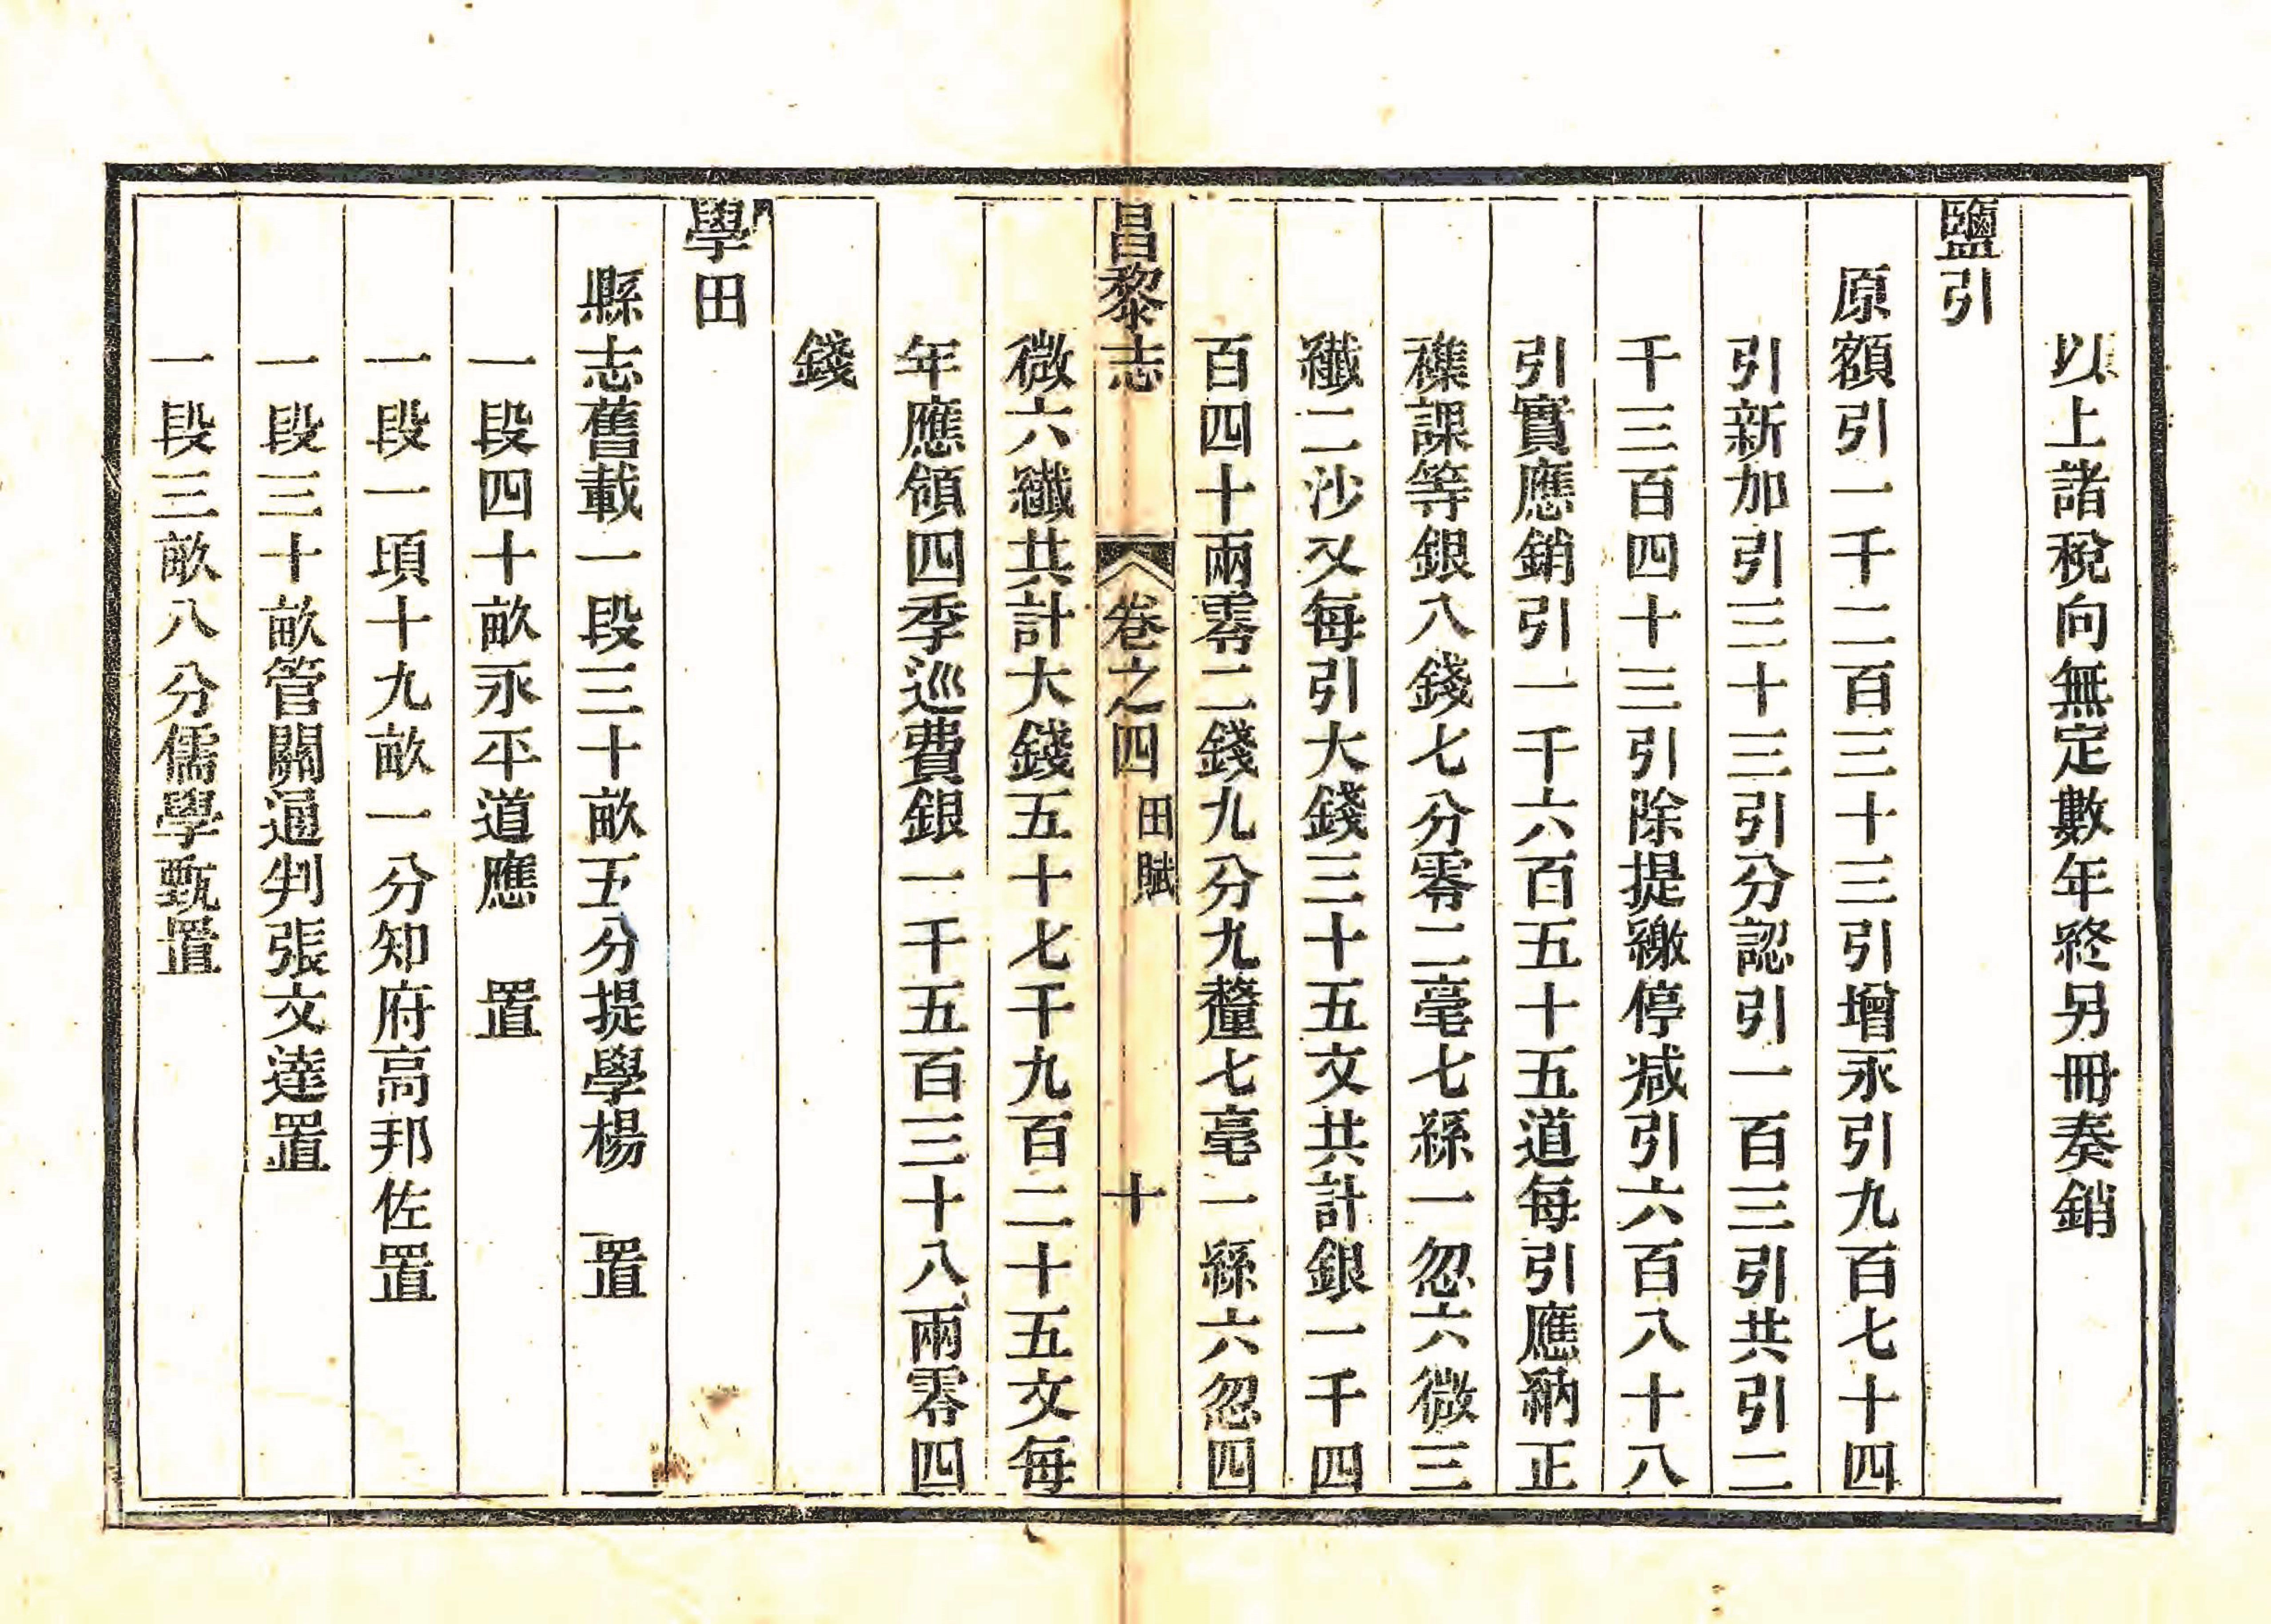 以上諸稅向無定數年終另冊奏銷
鹽引
原額引一千二百三十三引增永引九百七十四
引新加引三十三引分認引一百三引共引二
千三百四十三引除提繳停减引六百八十八
引實應銷引一千六百五十五道每引應納正
襍課等銀八錢七分零二毫七絲一忽六微三
纖二沙又每引大錢三十五文共計銀一千四
百四十兩零二錢九分九釐七毫一絲六忽四
昌黎志 卷之四 田賦 十
微六纖共計大錢五十七千九百二十五文每
年應領四季巡費銀一千五百三十八兩零四
錢
學田
縣志舊載一段三十畝五分提學楊 置
一段四十畝永平道應 置
一段一頃十九畝一分知府高邦佐置
一段三十畝管關通判張文達置
一段三畝八分儒學甄置